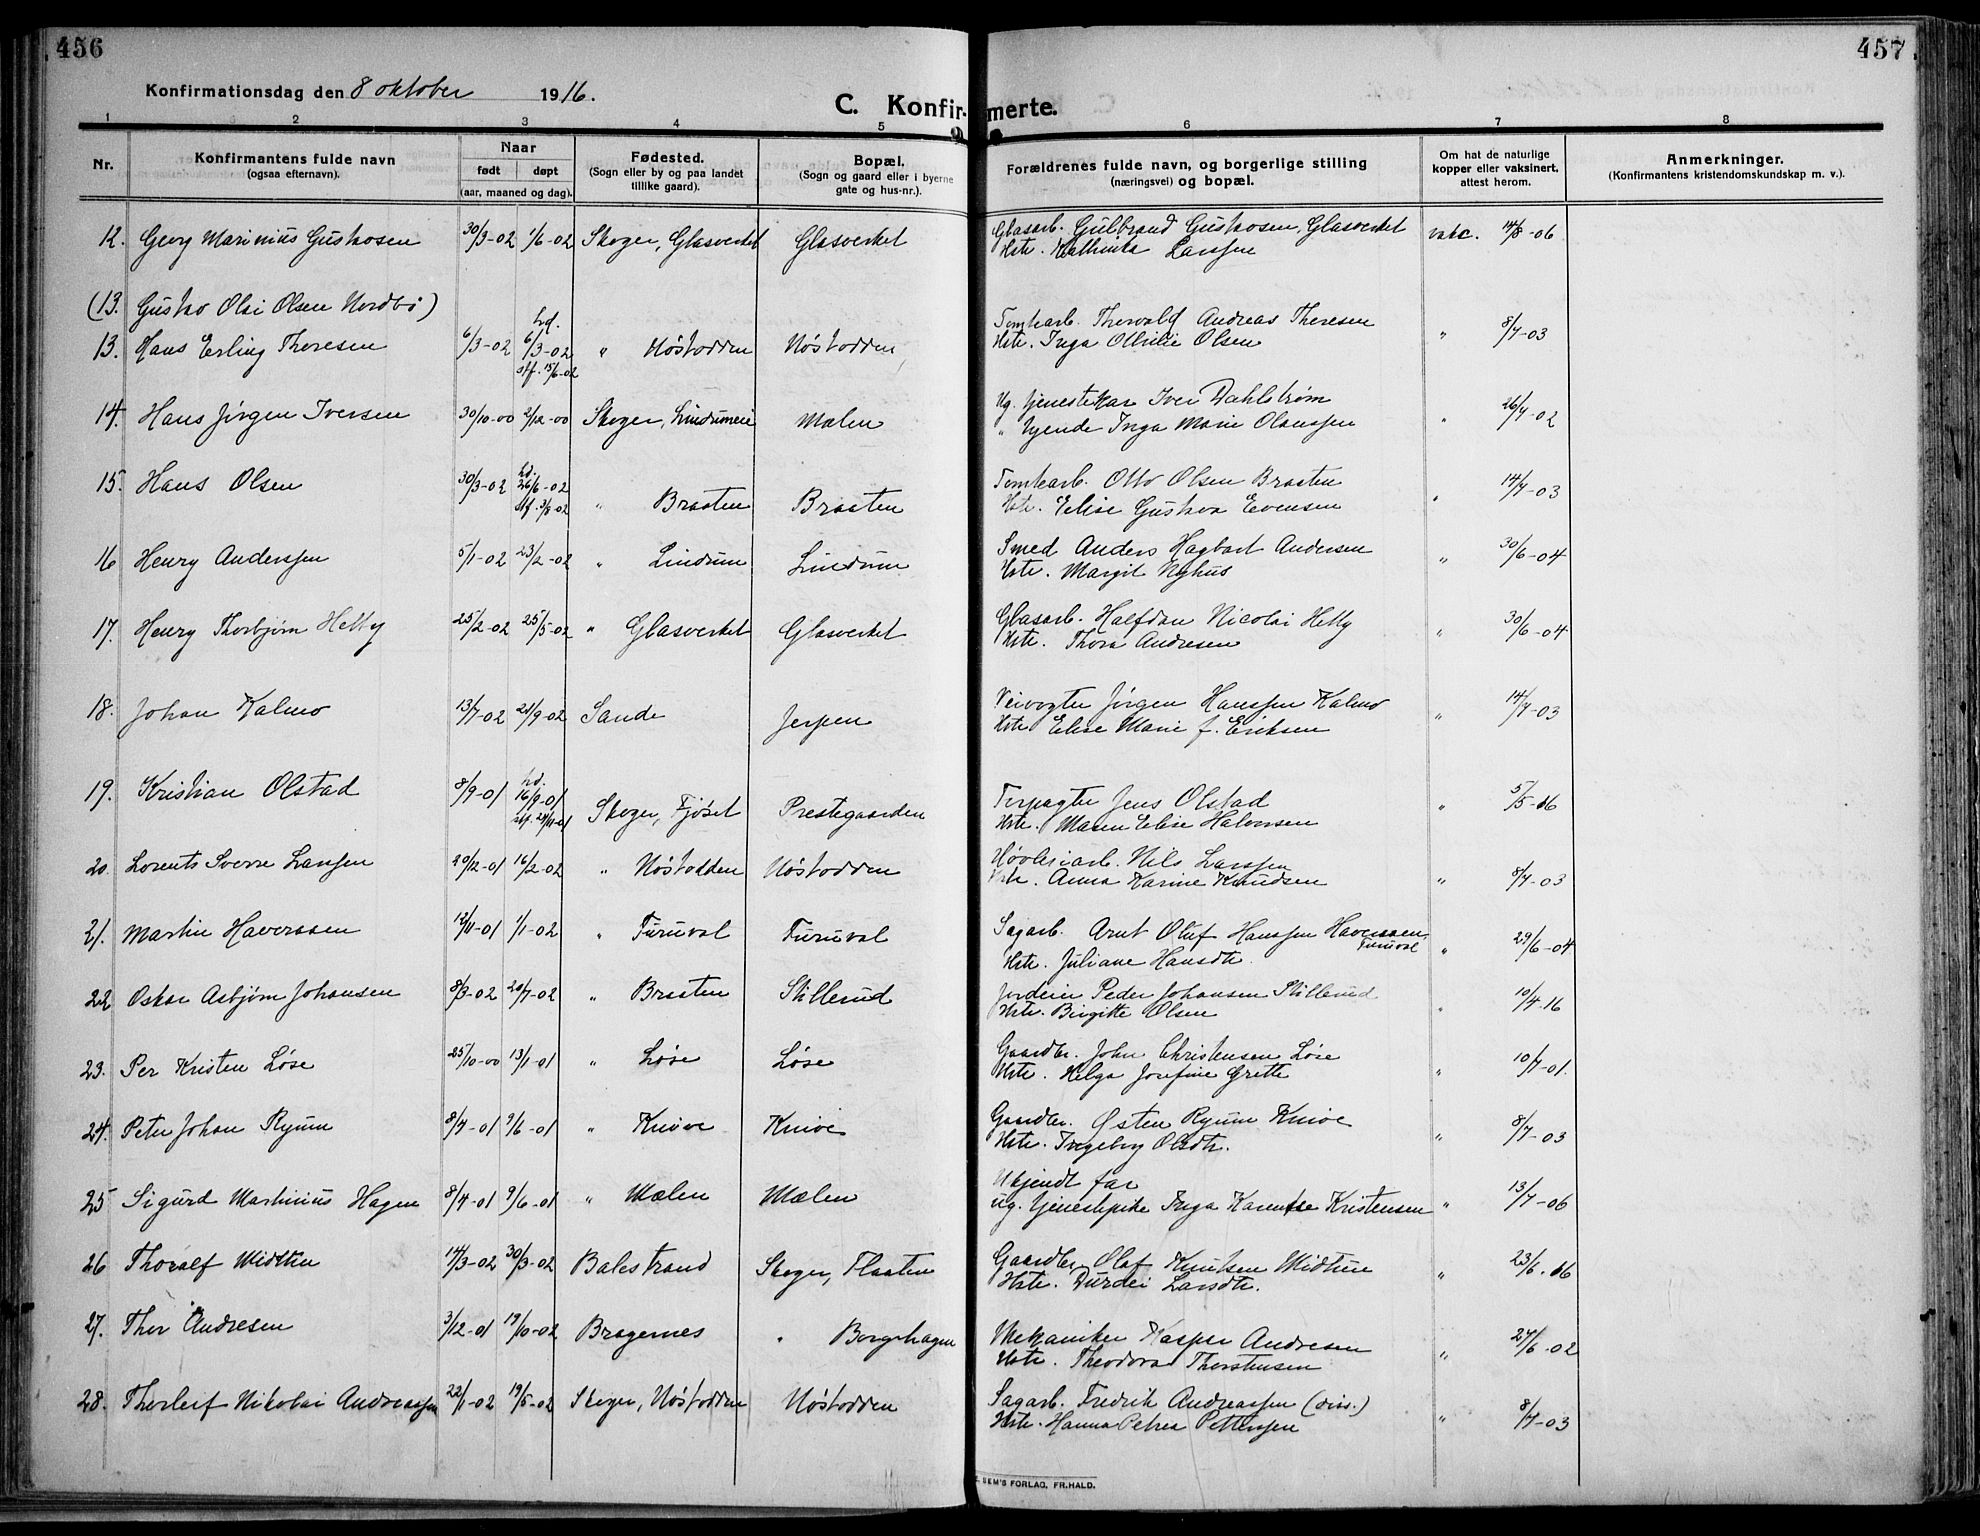 456
457
Konfirmationsdag den 8 oktober 1916.
C. Konfirmerte.
1 2 3 4 5 6 7 8
Nr.
Konfirmantens fulde navn
(ogsaa efternavn).
Naar
født døpt
(aar, maaned og dag).
Fødested.
(Sogn eller by og paa landet
tillike gaard).
Bopæl.
(Sogn og gaard eller i byerne
gate og hus-nr.).
Forældrenes fulde navn, og borgerlige stilling
(næringsvei) og bopæl.
Om hat de naturlige
kopper eller vaksinert,
attest herom.
Anmerkninger.
(Konfirmantens kristendomskundskap m. v.).
12. Georg Marinius Gustavsen 30/3-02 1/6-02 Skoger, Glasverket Glasverket Glasarb. Gulbrand Gustavsen, Glasverket vakc. 14/8-06
Hstr. Kathinka Larssen
(13. Gustav Olai Olsen Nordbø)
13. Hans Erling Thoresen 6/3-02 hd. 6/3-02 " Nøstodden Nøstodden Tomtearb. Thorvald Andreas Thoresen " 8/7-03
stf. 15/6-02 Hstr. Inga Othilie Olsen
14. Hans Jørgen Iversen 30/10-00 2/12-00 Skoger, Lindrumeie Mælen Ug. tjenestekar Iver Dahlstrøm " 26/7-02
" tjende Inga Marie Olaussen
15. Hans Olsen 30/3-02 hd. 26/6-02 " Braaten Braaten Tomtearb. Otto Olsen Braaten " 14/7-03
stf. 3/8-02 Hstr. Elise Gustava Evensen
16 Henry Anderssen 5/1-02 23/2-02 " Lindrum Lindrum Smed Anders Hagbart Andersen " 30/6-04
Hstr. Margit Nyhus
17. Henry Thorbjørn Hetty 25/2-02 25/5-02 " Glasverket Glasverket Glasarb. Halfdan Nicolai Hetty " 30/6-04
Hstr. Thora Andresen
18. Johan Kalmo 13/7-02 21/9-02 Sande Jerpen Veivogter Jørgen Hanssen Kalmo " 14/7-03
Hstr Elise Marie f. Eriksen
19. Kristian Olstad 8/9-01 hd. 16/9-01 Skoger, Fjøset Prestegaarden Forpagter Jens Olstad " 5/5-16
stf. 24/11-01 Hstr. Maren Elise Halvorsen
20. Lorents Sverre Larssen 20/12-01 16/2-02 " Nøstodden Nøstodden Høvleriarb. Nils Larssen " 8/7-03
Hstr. Anna Karine Knudsen
21. Martin Haverssen 12/11-01 1/1-02 " Furuval Furuval Sagarb. Arnt Oluf Hanssen Haverssen " 29/6-04
Furuval
Hstr. Juliane Hansdtr.
22 Oskar Asbjørn Johansen 8/3-02 20/7-02 " Braaten Stillerud Jordeier Peder Johansen Stillerud " 10/4-16
Hstr. Birgitte Olsen
23. Per Kristen Løse 25/10-00 13/1-01 " Løse Løse Gaardbr. John Christensen Løse " 10/7-01.
Hstr. Helga Josefine Grette
24. Peter Johan Ryum 8/4-01 9/6-01 " Knive Knive Gaardbr. Østen Ryum Knive " 8/7-03
Hstr. Ingeborg Olsdtr.
25 Sigurd Martinius Hagen 8/4-01 9/6-01 " Mælen Mælen Ukjendt far
ug. tjenestepike Inga Karentse Kristensen " 13/7-06
26 Thoralf Midttun 14/3-02 30/3-02 Balestrand Skoger, Flaaten Gaardbr. Olaf Knutsen Midtun " 23/6-16
Hstr. Durdei Larsdtr.
27. Thor Andresen 3/12-01 19/10-02 Bragernes " Borgehagen Mekaniker Kasper Andresen " 27/6-02
Hstr. Theodora Thorstensen
28. Thorleif Nikolai Andreassen 22/1-02 19/5-02 Skoger, Nøstodden Nøstodden Sagarb. Fredrik Andreassen (diss.) " 8/7-03
Hstr. Hanna Petrea Pettersen
SEM'S FORLAG, FR.HALD.